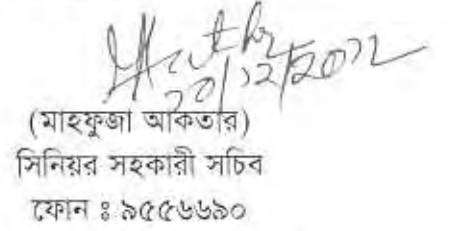 20/12/2022
(মাহফুজা আকতার)
সিনিয়র সহকারী সচিব
ফোন ঃ ৯৫৫৬৬৯০